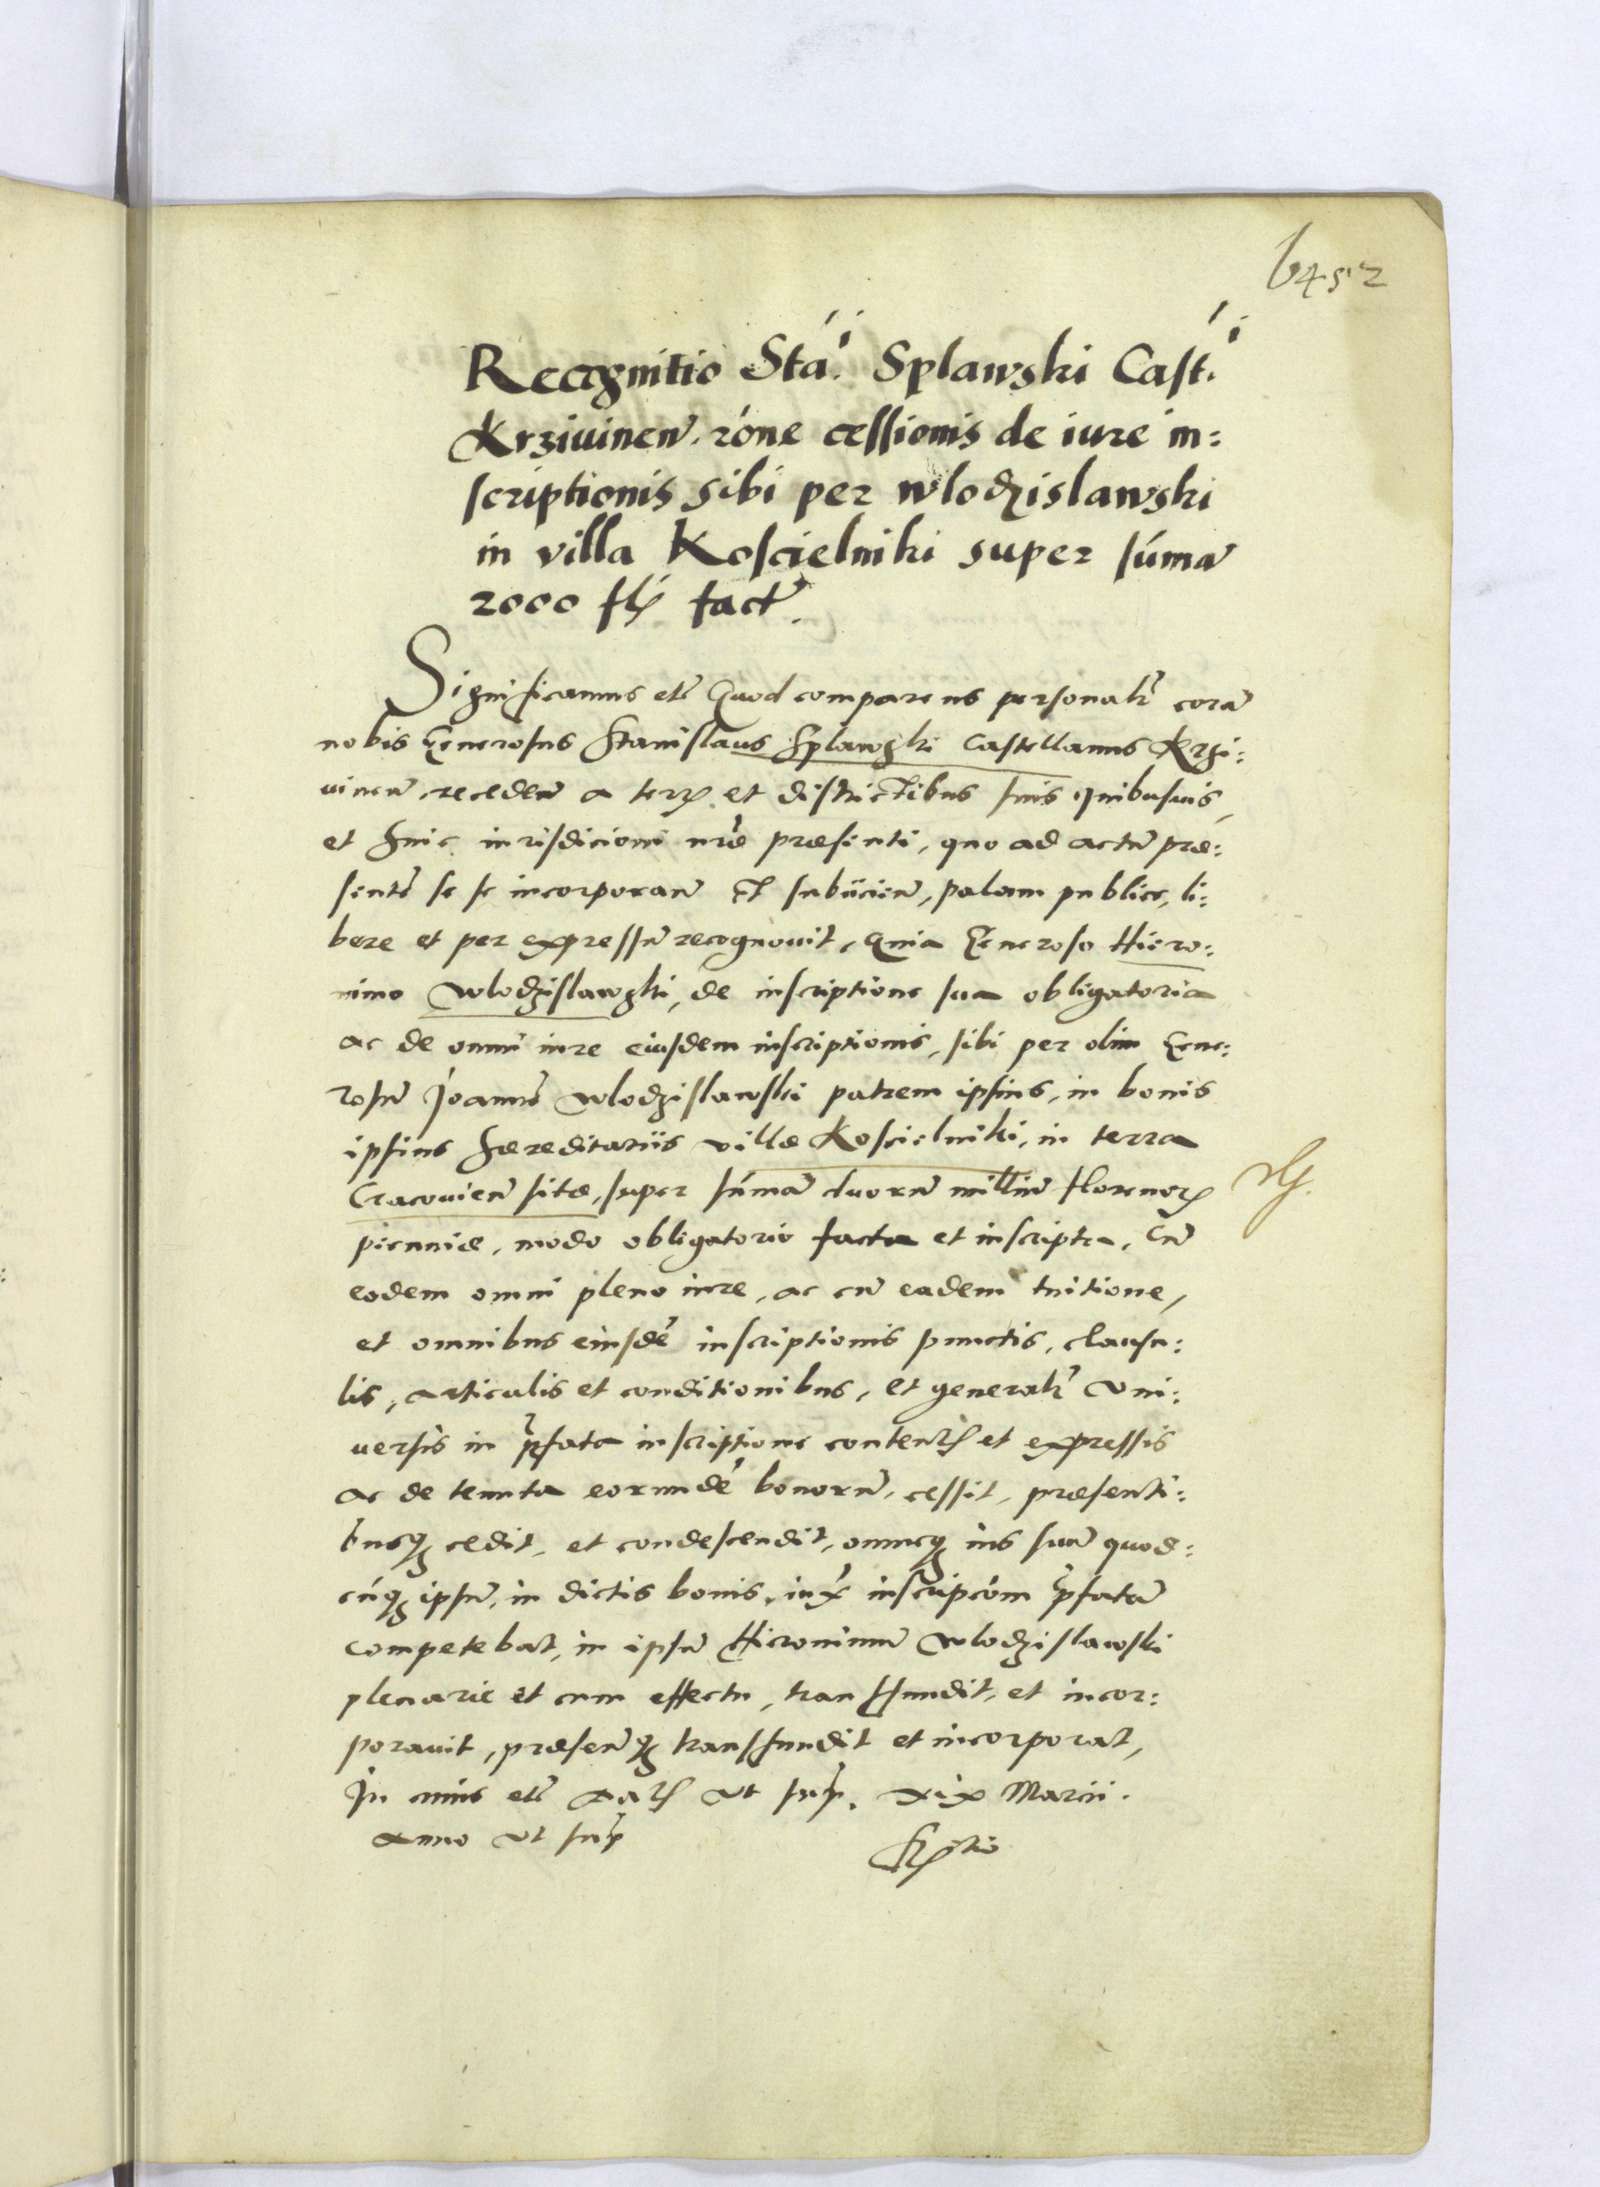 Recognitio Stai. Splawski Casti.
Krziuinen̄. rōne cessionis de iure in:
scriptionis sibi per Wlodzislawski
in villa Koscielniki super sūmā
2000 fl. fact̄.
Significamus etc̄ Quod comparens personalr̄ corā
nobis Generosus Stanislaus Splawski Castellanus Krzi:
uinen̄ receden̄ a terrꝭ et districtibus suis quibusuis,
et huic iurisdicioni nr̄ae praesenti, quo ad actū prae:
sentē se se incorporan̄ et subiicien̄, palam publice, li:
bere et per expressū recognouit, Quia Generoso Hiero:
nimo Wlodzislawski, de inscriptione sua obligatoria
ac de omni iure eiusdem inscriptionis, sibi per olim Gene:
rosū Joannē Wlodzislawski patrem ipsius, in bonis
ipsius haereditariis villae Koscielniki, in terra
Cracouien̄ sitae, super sūmā duorū milliū florenorꝭ
pecuniae, modo obligatorio facta et inscripta, Cū
eodem omni pleno iure, ac cū eadem tuitione,
et omnibus eiusdē inscriptionis punctis, clausu:
lis, articulis et conditionibus, et generalr̄ vni:
uersis in p̄fata inscriptione contentꝭ et expressis
ac de tenuta eorundē bonorū, cessit, praesenti:
busqꝫ cedit, et condescendit, omneqꝫ ius suū quod:
cūqꝫ ipsū, in dictis bonis, iuxͣ inscripcōm p̄fatā
competebat, in ipsū Hieronimū Wlodzislawski
plenarie et cum effectu, transfundit, et incor:
porauit, praesenqꝫ transfundit et incorporat,
In cuius etc̄ Datꝭ vt sup̄. xix Marcii.
Anno vt sup̄